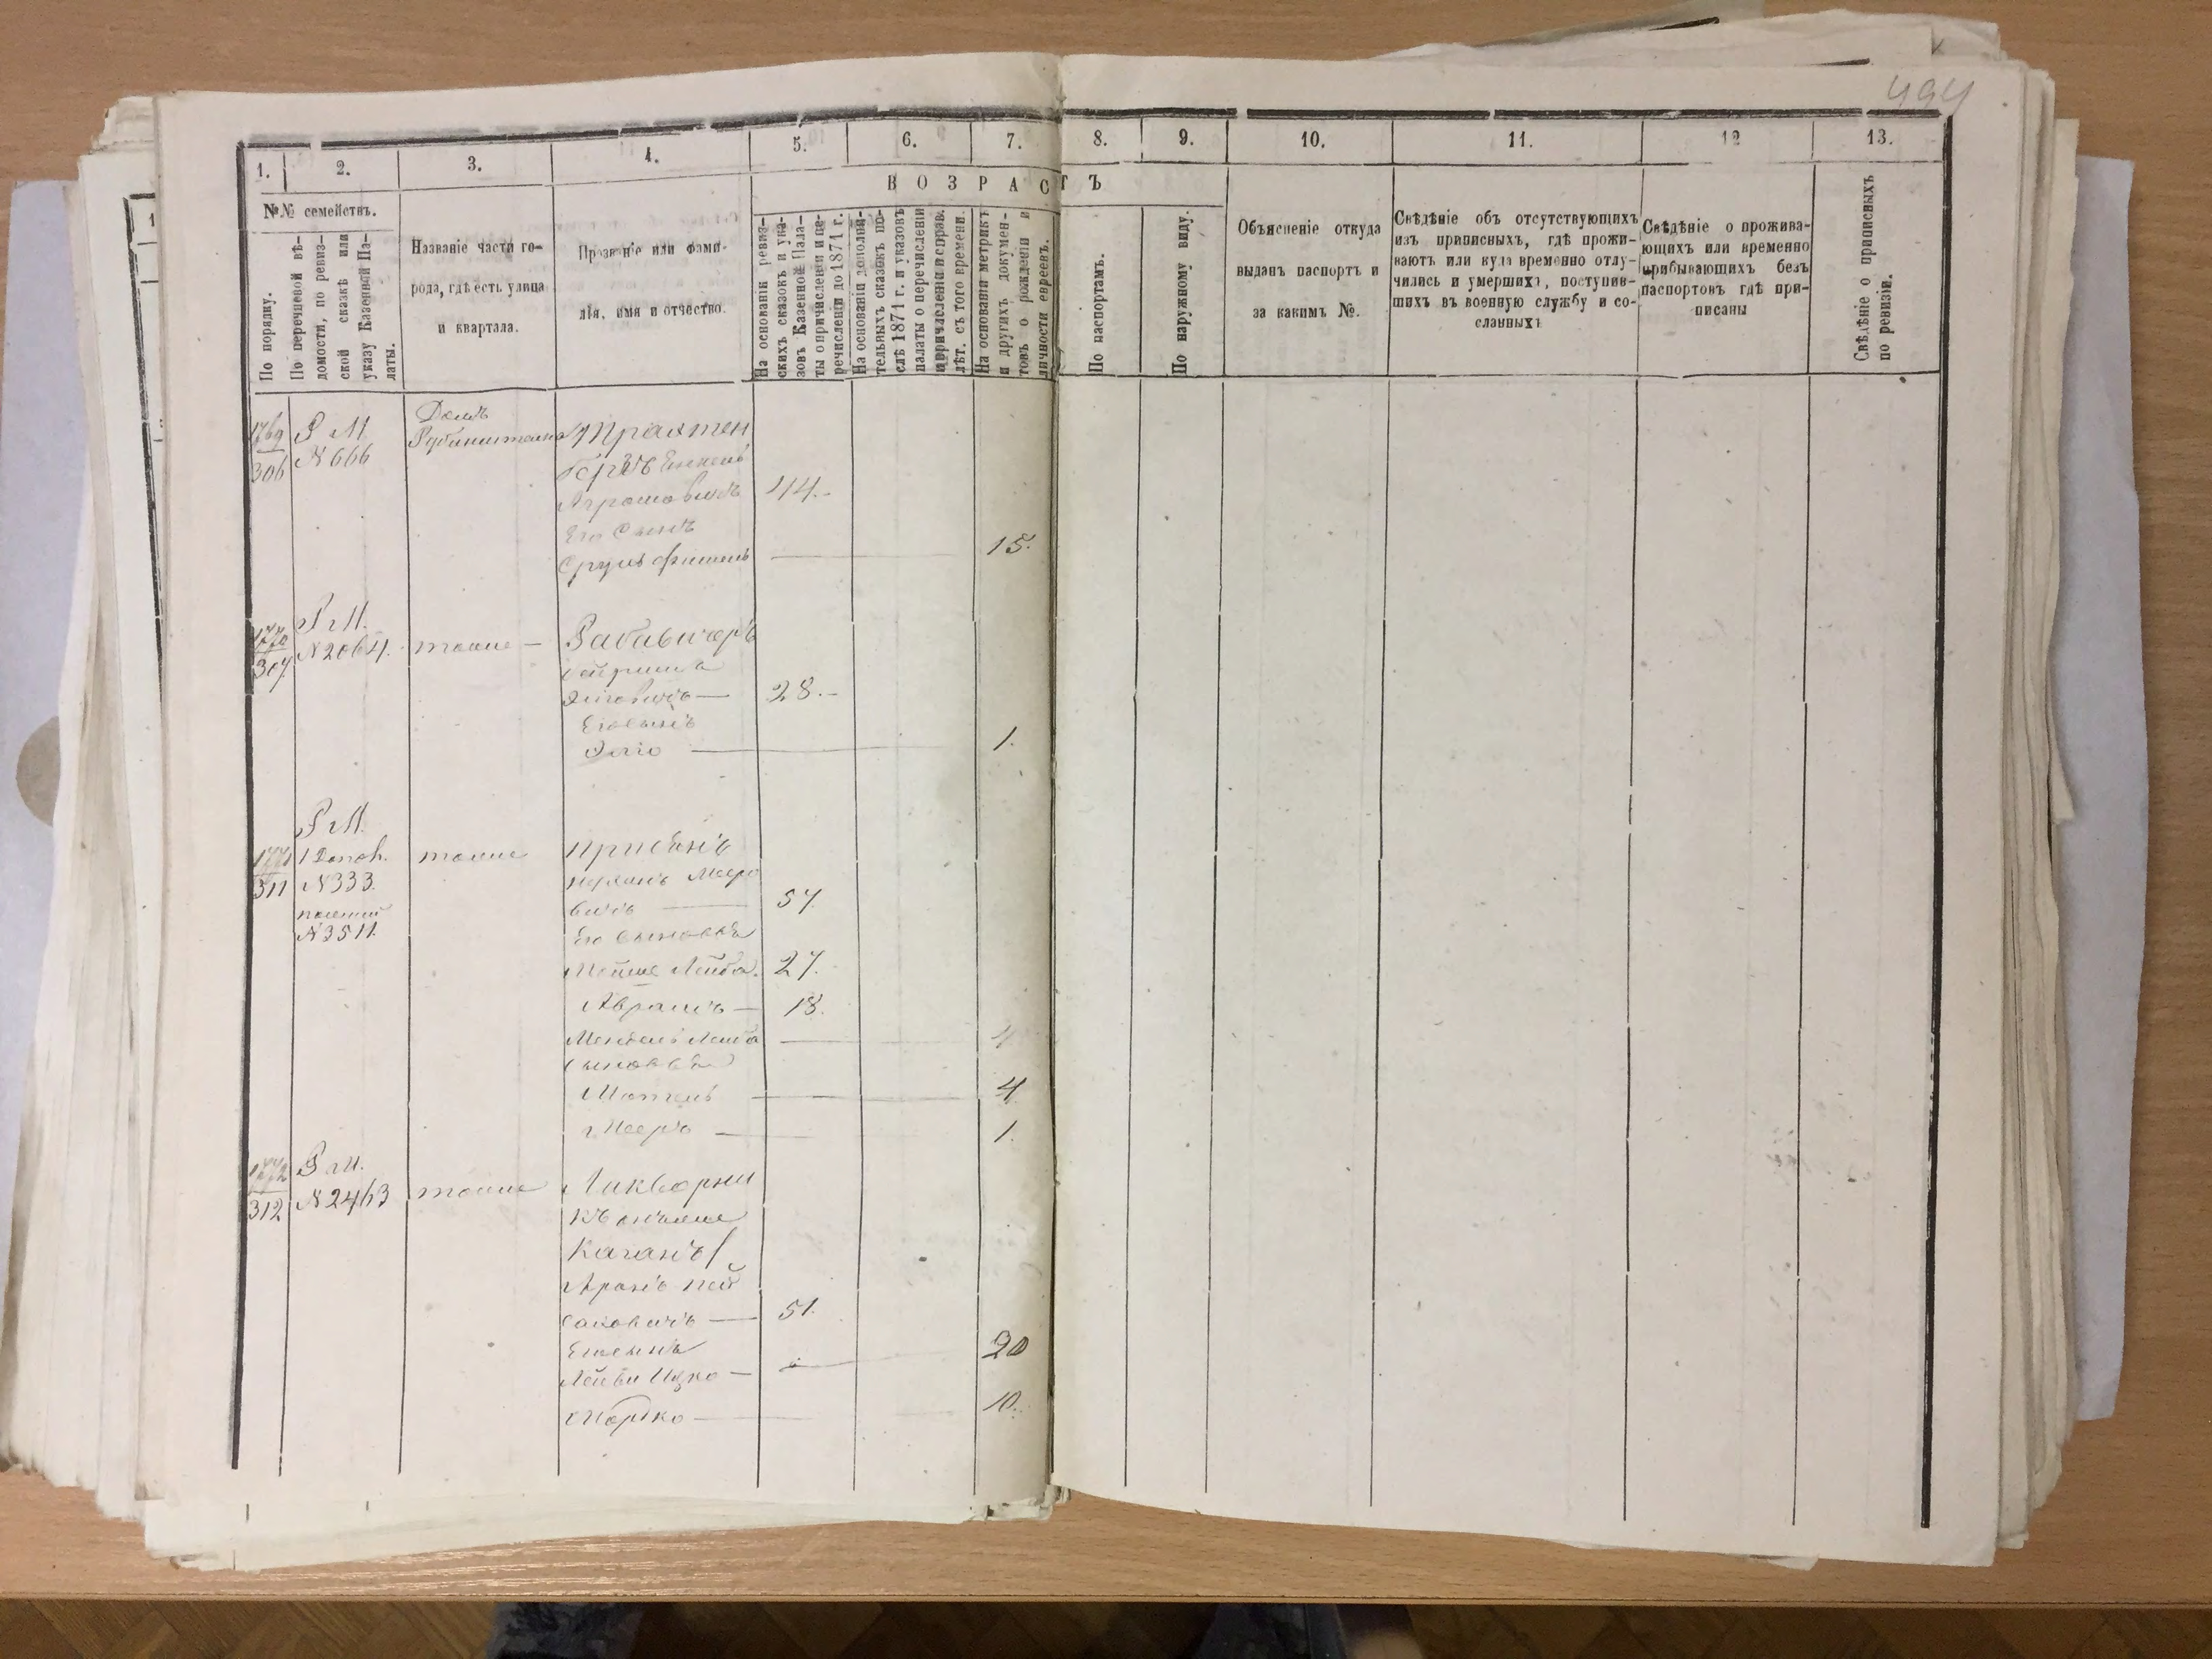 494
1.
2.
3.
4.
5.
6.
7.
8.
9.
10.
11.
12
13.
№№ семействъ.
По порядку.
По перечневой вѣ-
домости, по ревиз-
ской сказкѣ или
указу Казенной Па-
латы.
Названіе части го-
рода, гдѣ есть улица
и квартала.
Прозваніе или фами-
лія, имя и отчество.
ВОЗРАСТЪ
На основаніи ревиз-
скихъ сказокъ и ука-
зовъ Казенной Пала-
ты о причисленіи и пе-
речисленіи до 1871 г.
На основаніи дополни-
тельныхъ сказокъ по-
слѣ 1871 г. и указовъ
палаты о перечисленіи
и причисленіи и справ.
лѣт. съ того времени.
На основаніи метрикъ
и другихъ докумен-
товъ о рожденіи и
личности евреевъ.
По паспортамъ.
По наружному виду.
Объясненіе откуда
выданъ паспортъ и
за какимъ №.
Свѣдѣніе объ отсутствующихъ
изъ приписныхъ, гдѣ прожи-
ваютъ или куда временно отлу-
чились и умершихъ, поступив-
шихъ въ военную службу и со-
сланныхъ
Свѣдѣніе о прожива-
ющихъ или временно
прибывающихъ безъ
паспортовъ гдѣ при-
писаны
Свѣдѣніе о приписныхъ
по ревизіи.
1769
306
Р М
№ 666
Домъ
Рубинштейна
Его Сынъ
44.-
Сруль Фишель
15.
1770
307
Р М.
№ 2064.
тоже -
28.-
Его сынъ
1.
1771
311
Р М.
№ 333.
№ 3511
тоже
вичъ
57.
Его сыновья
Мойше Лейба
27.
Аврамъ
18.
Мендель Лейба
4
сыновья
Мотель
4
Мееръ
1.
1772
312
Р М.
№ 2463
тоже
Ликворни
къ онъже
Каганъ
Аронъ Пей
саховичъ
51.
Его сынъ
20
Лейви Ицко
10.